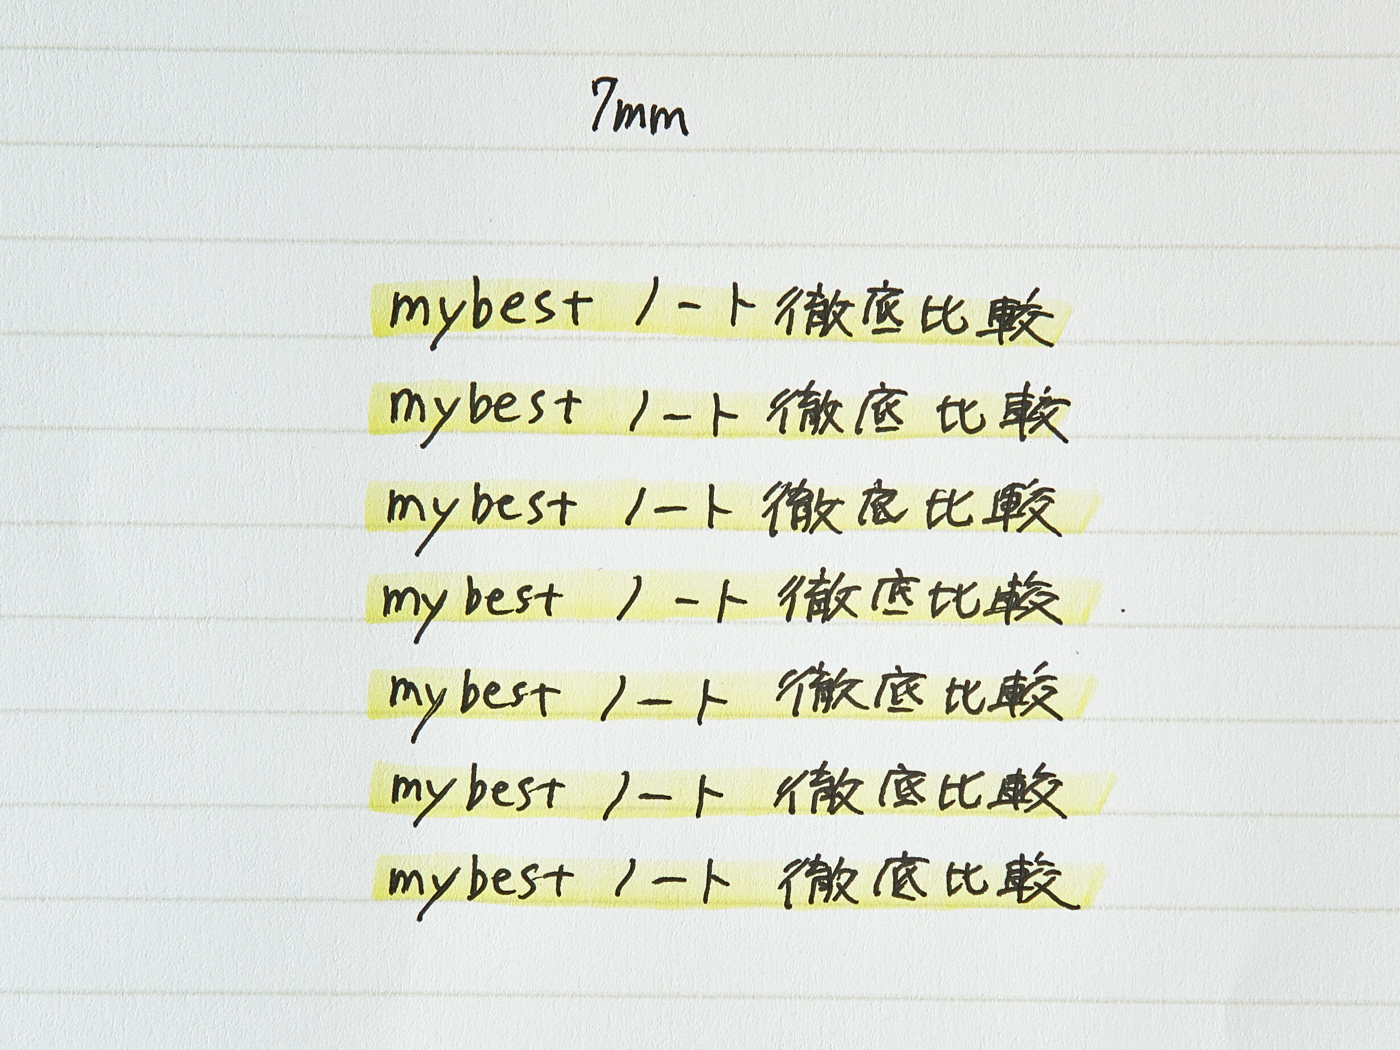 7mm
mybest ノート徹底比較
mybest ノート徹底比較
mybest ノート徹底比較
mybest ノート徹底比較
mybest ノート徹底比較
mybest ノート徹底比較
mybest ノート徹底比較